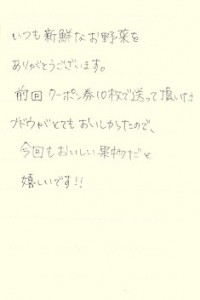 いつも新鮮なお野菜を
ありがとうございます。
前回クーポン券10枚で送って頂いた
ブドウがとてもおいしかったので、
今回もおいしい果物だと
嬉しいです!!